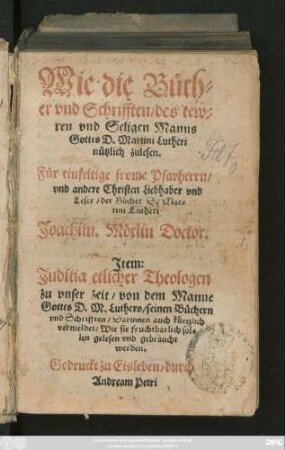 Wie die Büch-
er vnd Schrifften / des tew-
ren vnd Seligen Manns
Gottes D. Martini Lutheri
nützlich zulesen.
Für einfeltige frome Pfarherrn /
vnd andere Christen liebhaber vnd
Leser / der Bücher D. Mar-
tini Lutheri
Joachim. Mörlin Doctor.
Item:
Juditia etlicher Theologen
zu vnser zeit / von dem Manne
Gottes D. M. Luthero / seinen Büchern
vnd Schrifften / Darinnen auch kürtzlich
vermeldet / Wie sie fruchtbarlich sol-
len gelesen vnd gebraucht
werden.
Gedruckt zu Eisleben / durch
Andream Petri